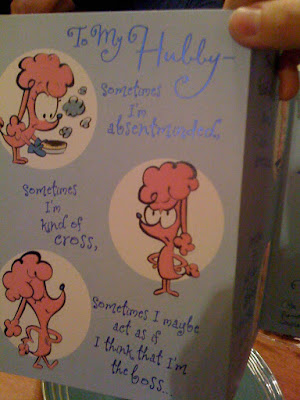 To My Hubby-
Sometimes
I'm
absentminded,
sometimes
I'm
kind of
cross,
Sometimes I maybe
act as if
I think that I'm
the boss...